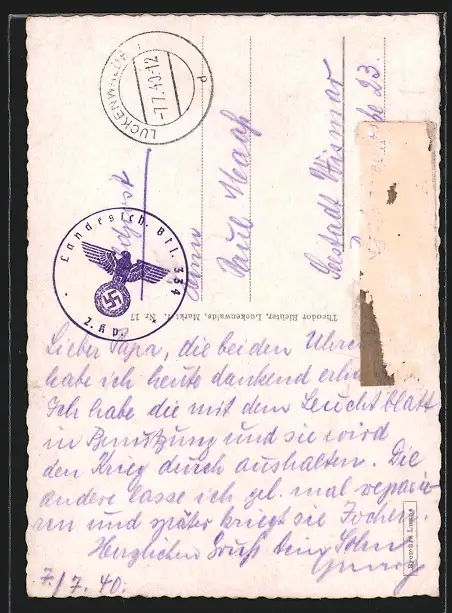 LUCKENWALDE 1
-7.7.40-12
P
Feldpost
Landessch. Btl. 334
Herrn
Paul Maaß
Seestadt Wismar
23.
Theodor Richter, Luckenwalde, Markt Nr. 17
Lieber Papa, die beiden Uhren
habe ich heute dankend
Ich habe die mit dem Leuchtblatt
in Benutzung und sie wird
den Krieg durch aushalten. Die
andere lasse ich gel. mal reparie
ren und später kriegt sie Jochen.
Herzlichen Gruß Dein Sohn
7./7. 40.